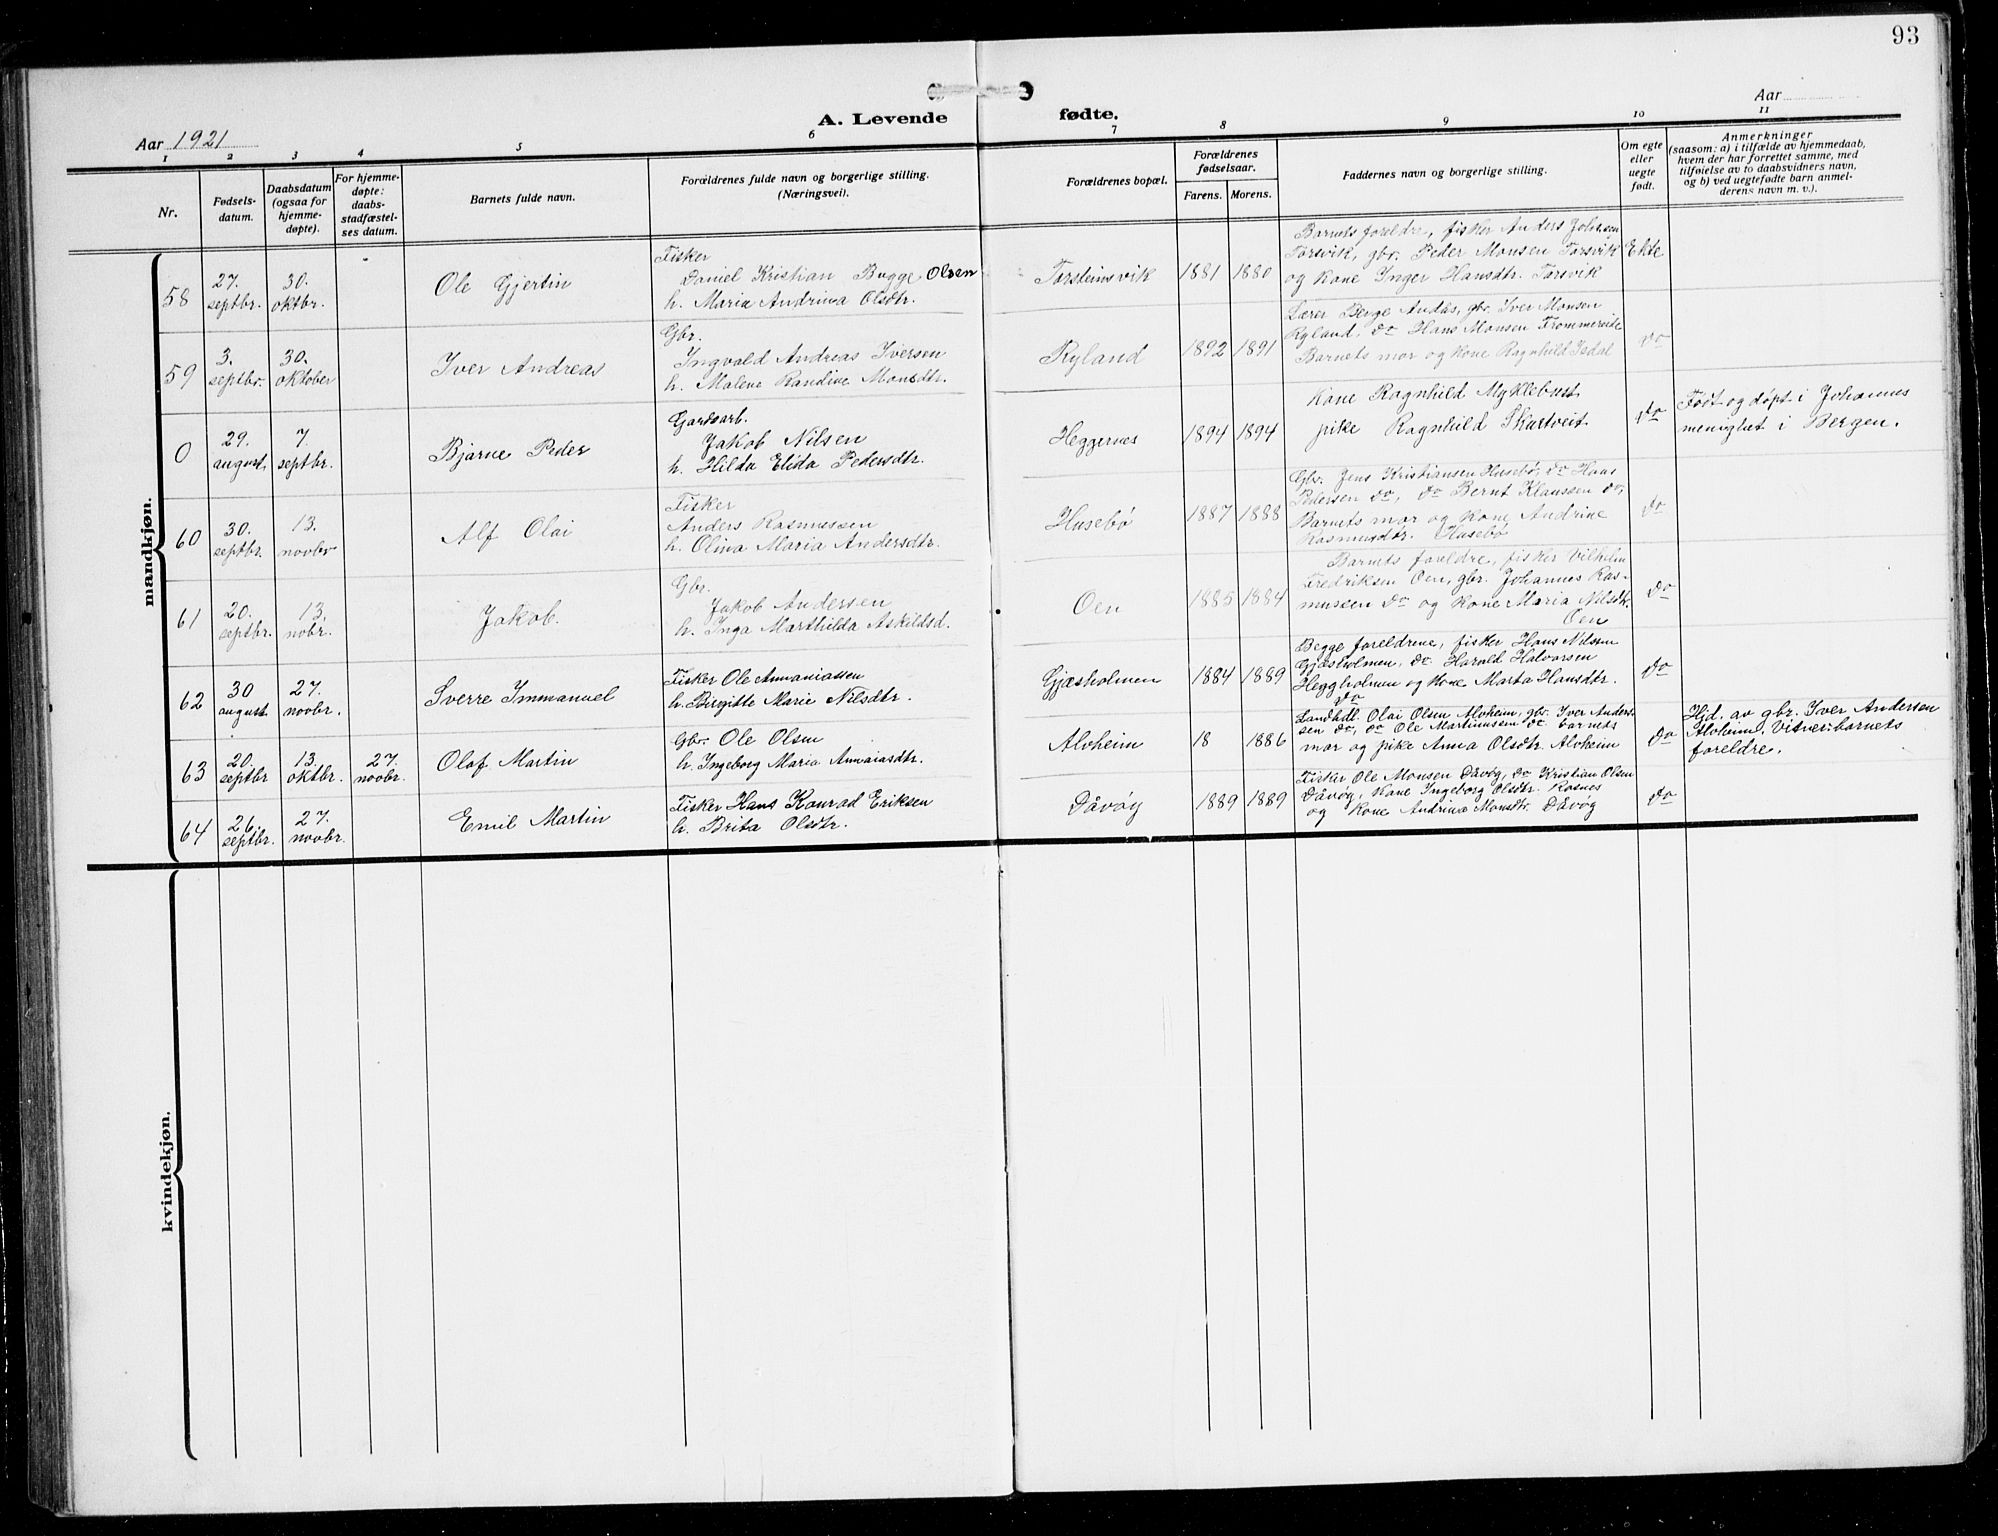 93
Aar 1921
A. Levende fødte.
Aar
1 2 3 4 5 6 7 8 9 10 11
Nr.
Fødsels-
datum.
Daabsdatum
(ogsaa for
hjemme-
døpte).
For hjemme-
døpte:
daabs-
stadfæstel-
ses datum.
Barnets fulde navn.
Forældrenes fulde navn og borgerlige stilling.
(Næringsvei).
Forældrenes bopæl.
Forældrenes
fødselsaar.
Farens. Morens.
Faddernes navn og borgerlige stilling.
Om egte
eller
uegte
født.
Anmerkninger
(saasom: a) i tilfælde av hjemmedaab,
hvem der har forrettet samme, med
tilføielse av to daabsvidners navn,
og b) ved uegtefødte barn anmel-
derens navn m. v.).
mandkjøn.
58
27.
septbr.
30.
oktbr.
Ole Gjertin
Fisker
Daniel Kristian Bugge Olsen
h. Maria Andrina Olsdtr.
Torsteinsvik
1881 1880
Barnets foreldre, fisker Anders Johnsen
Torsvik, gbr. Peder Monsen Torsvik
og kone Inger Hansdtr. Torsvik
Ekte
59
3.
septbr.
30.
oktober
Iver Andreas
Gbr.
Ingvald Andreas Iversen
h. Malene Randine Monsdtr.
Ryland
1892 1891
Lærer Berge Andås, gbr. Iver Monsen
Ryland, do Hans Monsen Frommereide
Barnets mor og kone Ragnhild Isdal
do
0
29.
august
7.
septbr.
Bjarne Peder
Gardsarb.
Jakob Nilsen
h. Hilda Elida Pedersdtr.
Heggernes
1894 1894
Kone Ragnhild Myklebust
pike Ragnhild Skurtveit
do
Født og døpt i Johannes
menighet i Bergen.
60
30.
septbr.
13.
novbr
Alf Olai
Fisker
Anders Rasmussen
h. Olina Maria Andersdtr.
Husebö
1887 1888
Gbr. Jens Kristiansen Husebö, do Hans
Pedersen do, do Bernt Klaussen do,
Barnets mor og kone Andrine
Rasmusdtr. Husebö
do
61
20.
septbr.
13.
nobr.
Jakob.
Gbr.
Jakob Andersen
h. Inga Marthilda Askildsd.
Oen
1885 1884
Barnets foreldre, fisker Vilhelm
Fredriksen Oen, gbr. Johannes Ras-
mussen do og kone Maria Nilsdtr.
Oen
do
62
30
august
27.
novbr.
Sverre Immanuel
Fisker Ole Annaniassen
h. Birgitte Marie Nilsdtr.
Gjæsholmen
1884 1889
Begge foreldrene, fisker Hans Nilsen
Gjæsholmen, do Harald Halvorsen
Heggholmen og kone Marta Hansdtr.
do
do
63
20.
septbr
13.
oktbr.
27.
novbr.
Olaf Martin
Gbr. Ole Olsen
h. Ingeborg Maria Annaiasdtr.
Alvheim
18 1886
Landhdl. Olai Olsen Alvheim, gbr. Iver Anders-
sen do, do Ole Martinusen do barnets
mor og pike Anna Olsdtr. Alvheim
do
Hjd. av gbr. Iver Andersen
Alvheim. Vitner: barnets
foreldre.
64
26.
septbr.
27.
novbr.
Emil Martin
Fisker Hans Konrad Eriksen
h. Brita Olsdtr.
Dåvøy
1889 1889
Fisker Ole Monsen Dåvøy, do Kristian Olsen
Dåvøy, kone Ingeborg Olsdtr. Rosnes
og kone Andrina Monsdtr. Dåvøy
do
kvindekjøn.